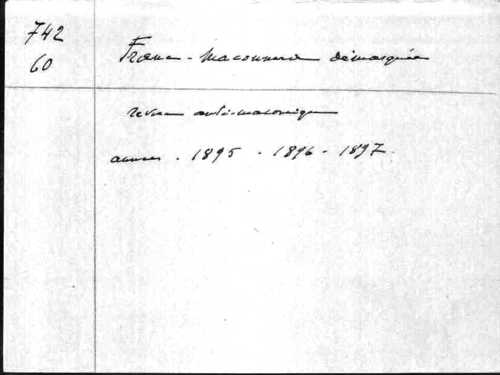 742
60
Franc-Maçonnerie démasquée
revue anti-maçonnique
années. 1895 - 1896 - 1897.